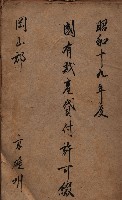 昭和十九年度
國有財産貸付許可綴
岡山部